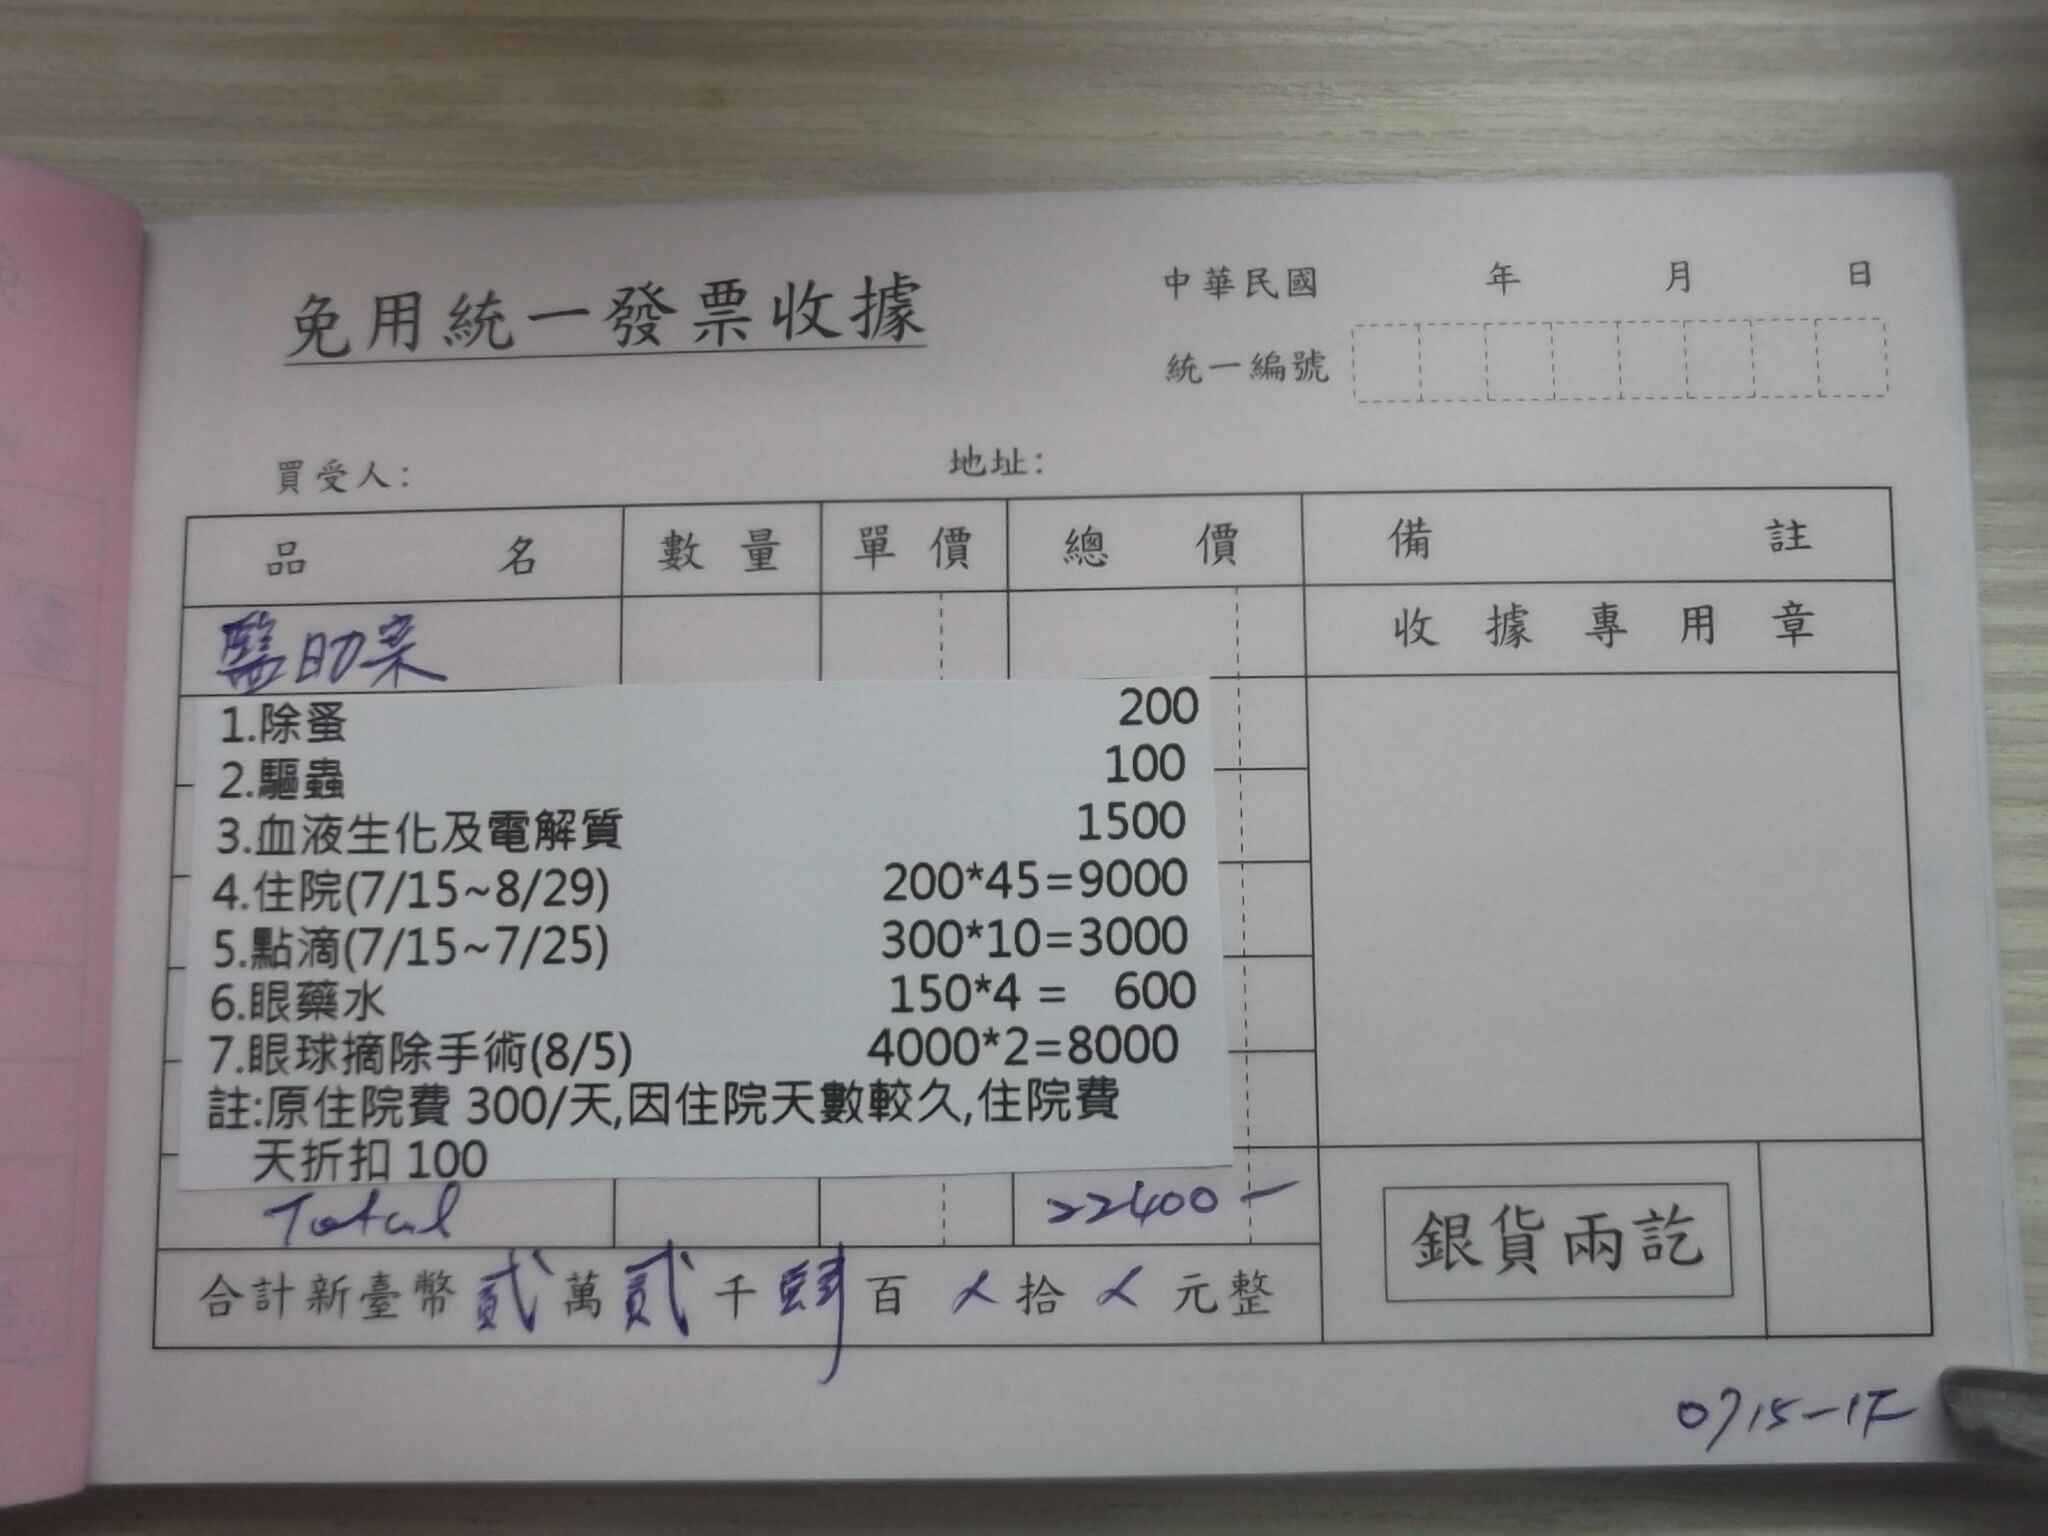 免用統一發票收據
中華民國 年 月 日
統一編號
買受人:
地址:
品名 數量 單價 總價 備註
醫助案
收據專用章
1.除蚤 200
2.驅蟲 100
3.血液生化及電解質 1500
4.住院(7/15~8/29) 200*45=9000
5.點滴(7/15~7/25) 300*10=3000
6.眼藥水 150*4 = 600
7.眼球摘除手術(8/5) 4000*2=8000
註:原住院費 300/天,因住院天數較久,住院費
天折扣 100
Total 22400-
銀貨兩訖
合計新臺幣貳萬貳千肆百 拾 元整
0715-1F